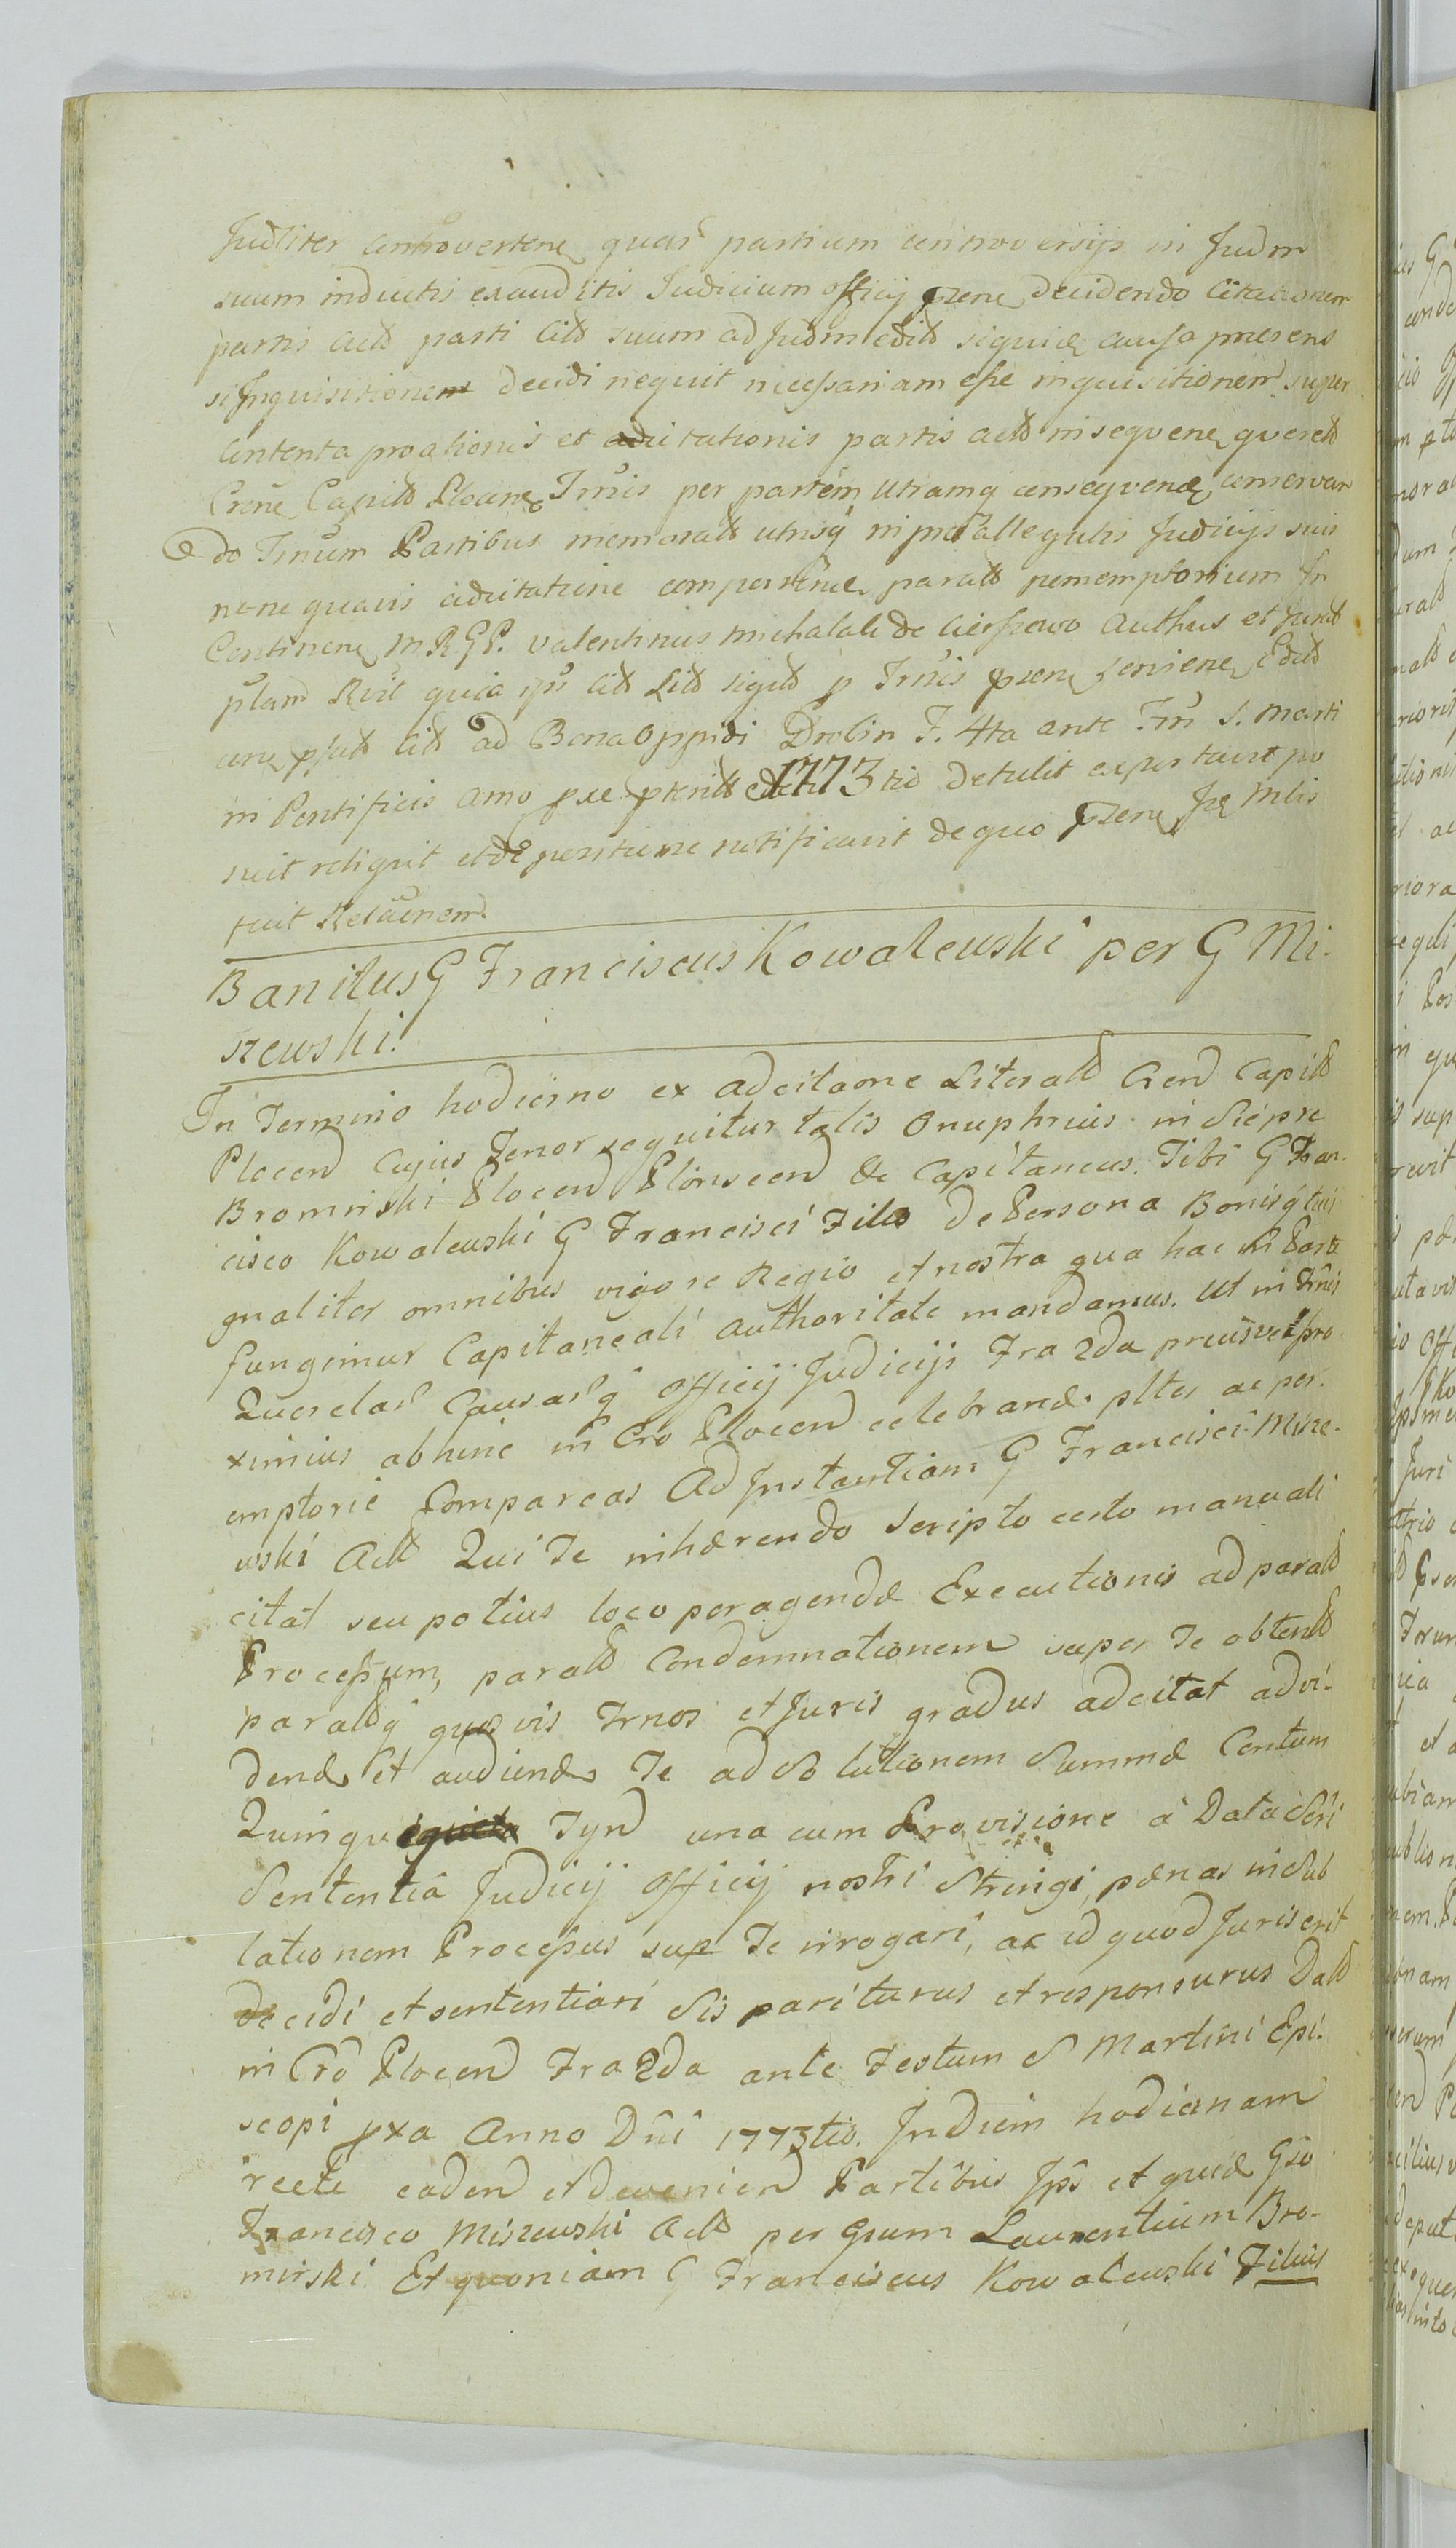 Judliter controvertene quar partium controversijs in Judm
suum inductis exauditis Judicium officij psene decidendo Citationem
partis actt parti Citt suum ad Judm edidt siquide causa praesens
si Inquisitionem decidi nequit necessariam esse inquisitionem super
contenta proationis et adcitationis partis actt insequene querett
Crene Capitt Plocene Trnis per partem utramq consequende conservan
do Trnum Partibus memoratt utrisq in praeallegatis Judicijs suis
nene quavis adcitatione comparende paratt peremptorium In
Continene M R G P. Valentinus Michalak de Cierszewo Authus et Jurat
plam Rvit quia ips Citt Litt sigitt p Trnis psene serviene Edidt
une psutt Citt ad Bona Oppidi Drobin F. 4ta ante Fm S. Marti
ni Pontificis anno pxe pteritt 1773 tio detulit exportavit po
suit reliquit et de positione notificavit de quo psene fe Mlis
fecit Relaonem
Banitus G Franciscus Kowalewski per G Mi-
szewski.
In Termino hodierno ex adcitaone Literatt Crend Capitt
Plocend Cujus Tenor sequitur talis Onuphrius in Siepre
Bromirski Plocend Plonscend &c Capitaneus. Tibi G Fran-
cisco Kowalewski G Francisci Filio de Persona Bonisq tuis
gnaliter omnibus vigore Regio et nostra qua hac in Parte
fungimur Capitaneali authoritate mandamus. Ut in Trnis
Querelar Causarq officij Judicijs Fra 2da pro-
ximius abhinc in Cro Plocend celebrand plter ac per-
emptorie Compareas Ad Instantiam G Francisci Misze-
wski Actt Qui Te inhaerendo Scripto certo manuali
citat seu potius loco peragendae Executionis ad paratt
Processum, paratt Condemnationem super Te obtentt
parattq quosvis Trnos et Juris gradus adcitat ad vi-
dend et audiend Te ad Solutionem Summae Centum
Quinque Tynd una cum Provisione à Data Scri
Sententiâ Judicij Officij nostri Stringi, paenas in Sub
lationem Processus sup Te irrogari, ac id quod Juris erit
decidi et sententiari Sis pariturus et responsurus Datt
in Cro Plocend Fra 2da ante Festum S Martini Epi-
scopi pxa Anno Dni 1773tio. In Diem hodiernam
recte cadend et devenien Partibus Ips et quide Gso
Francisco Miszewski Actt per Gsum Laurentium Bro-
mirski Et quoniam G Franciscus Kowalewski Filius